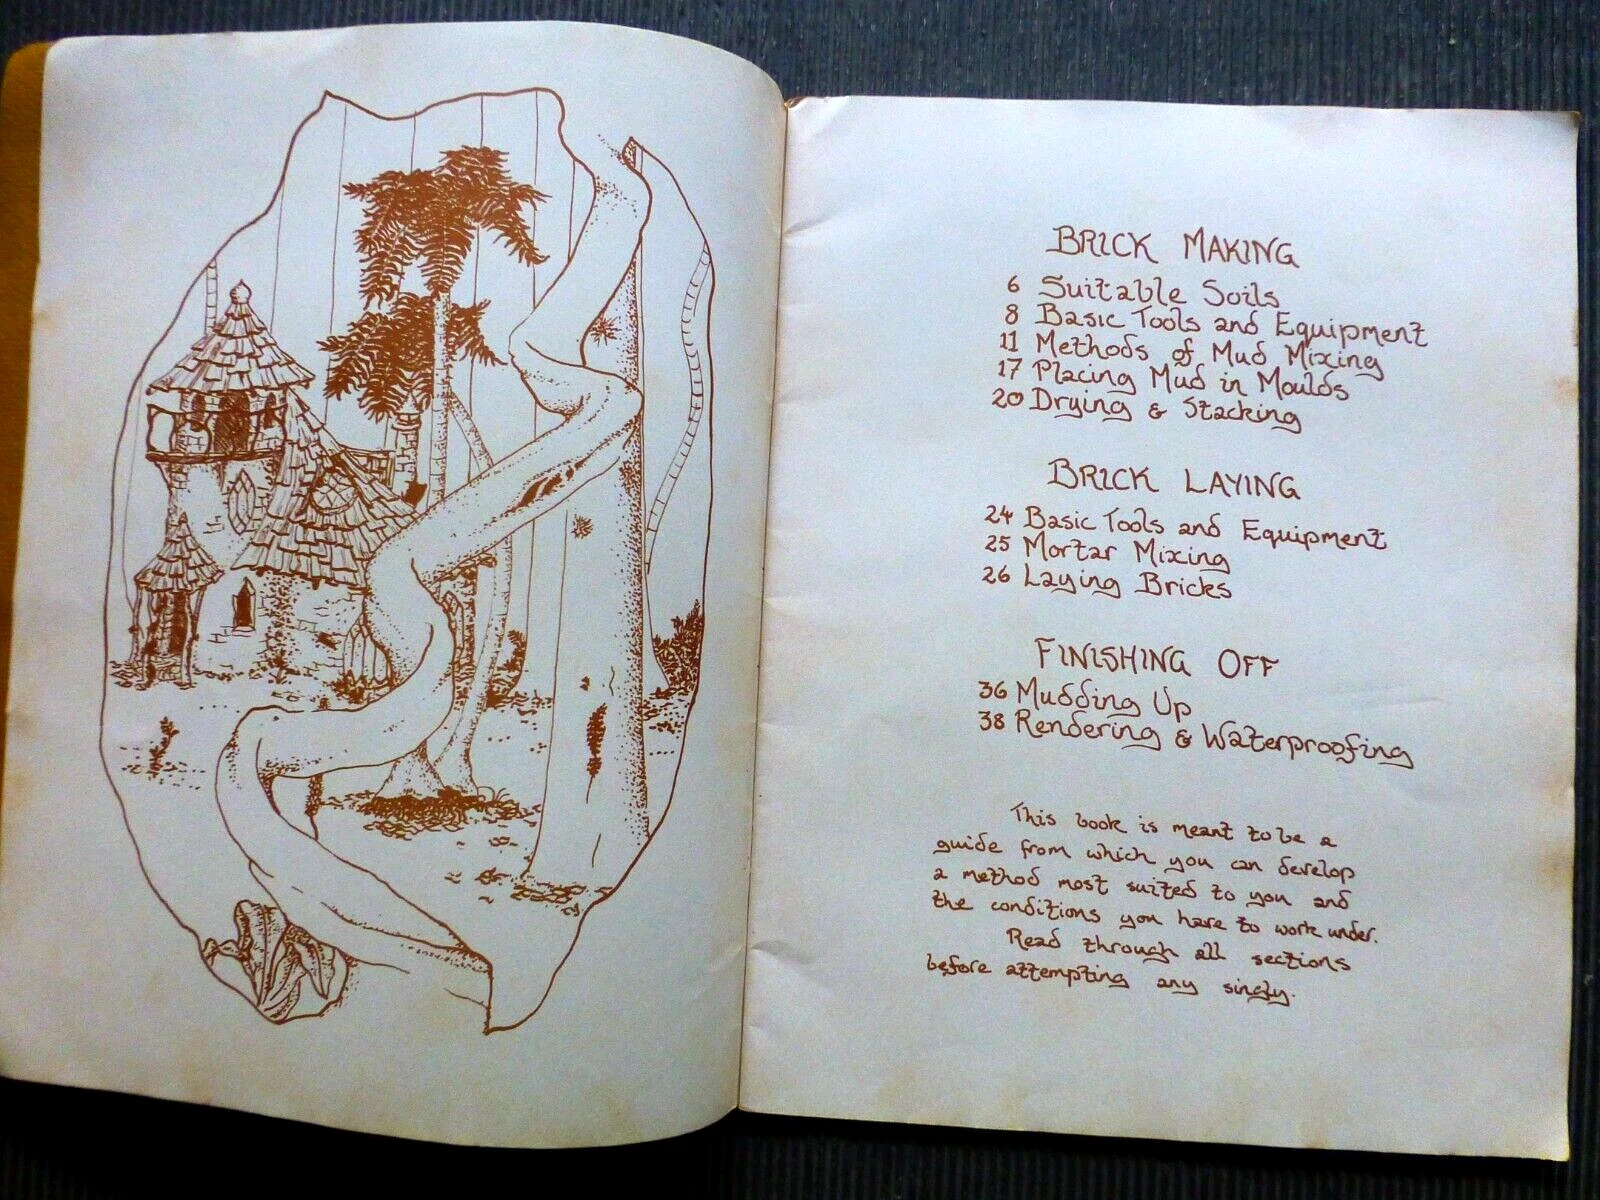 BRICK MAKING
6 Suitable Soils
8 Basic Tools and Equipment
11 Methods of Mud Mixing
17 Placing Mud in Moulds
20 Drying & Stacking
BRICK LAYING
24 Basic Tools and Equipment
25 Mortar Mixing
26 Laying Bricks
FINISHING OFF
36 Mudding Up
38 Rendering & Waterproofing
This book is meant to be a
guide from which you can develop
a method most suited to you and
the conditions you have to work under.
Read through all sections
before attempting any singly.